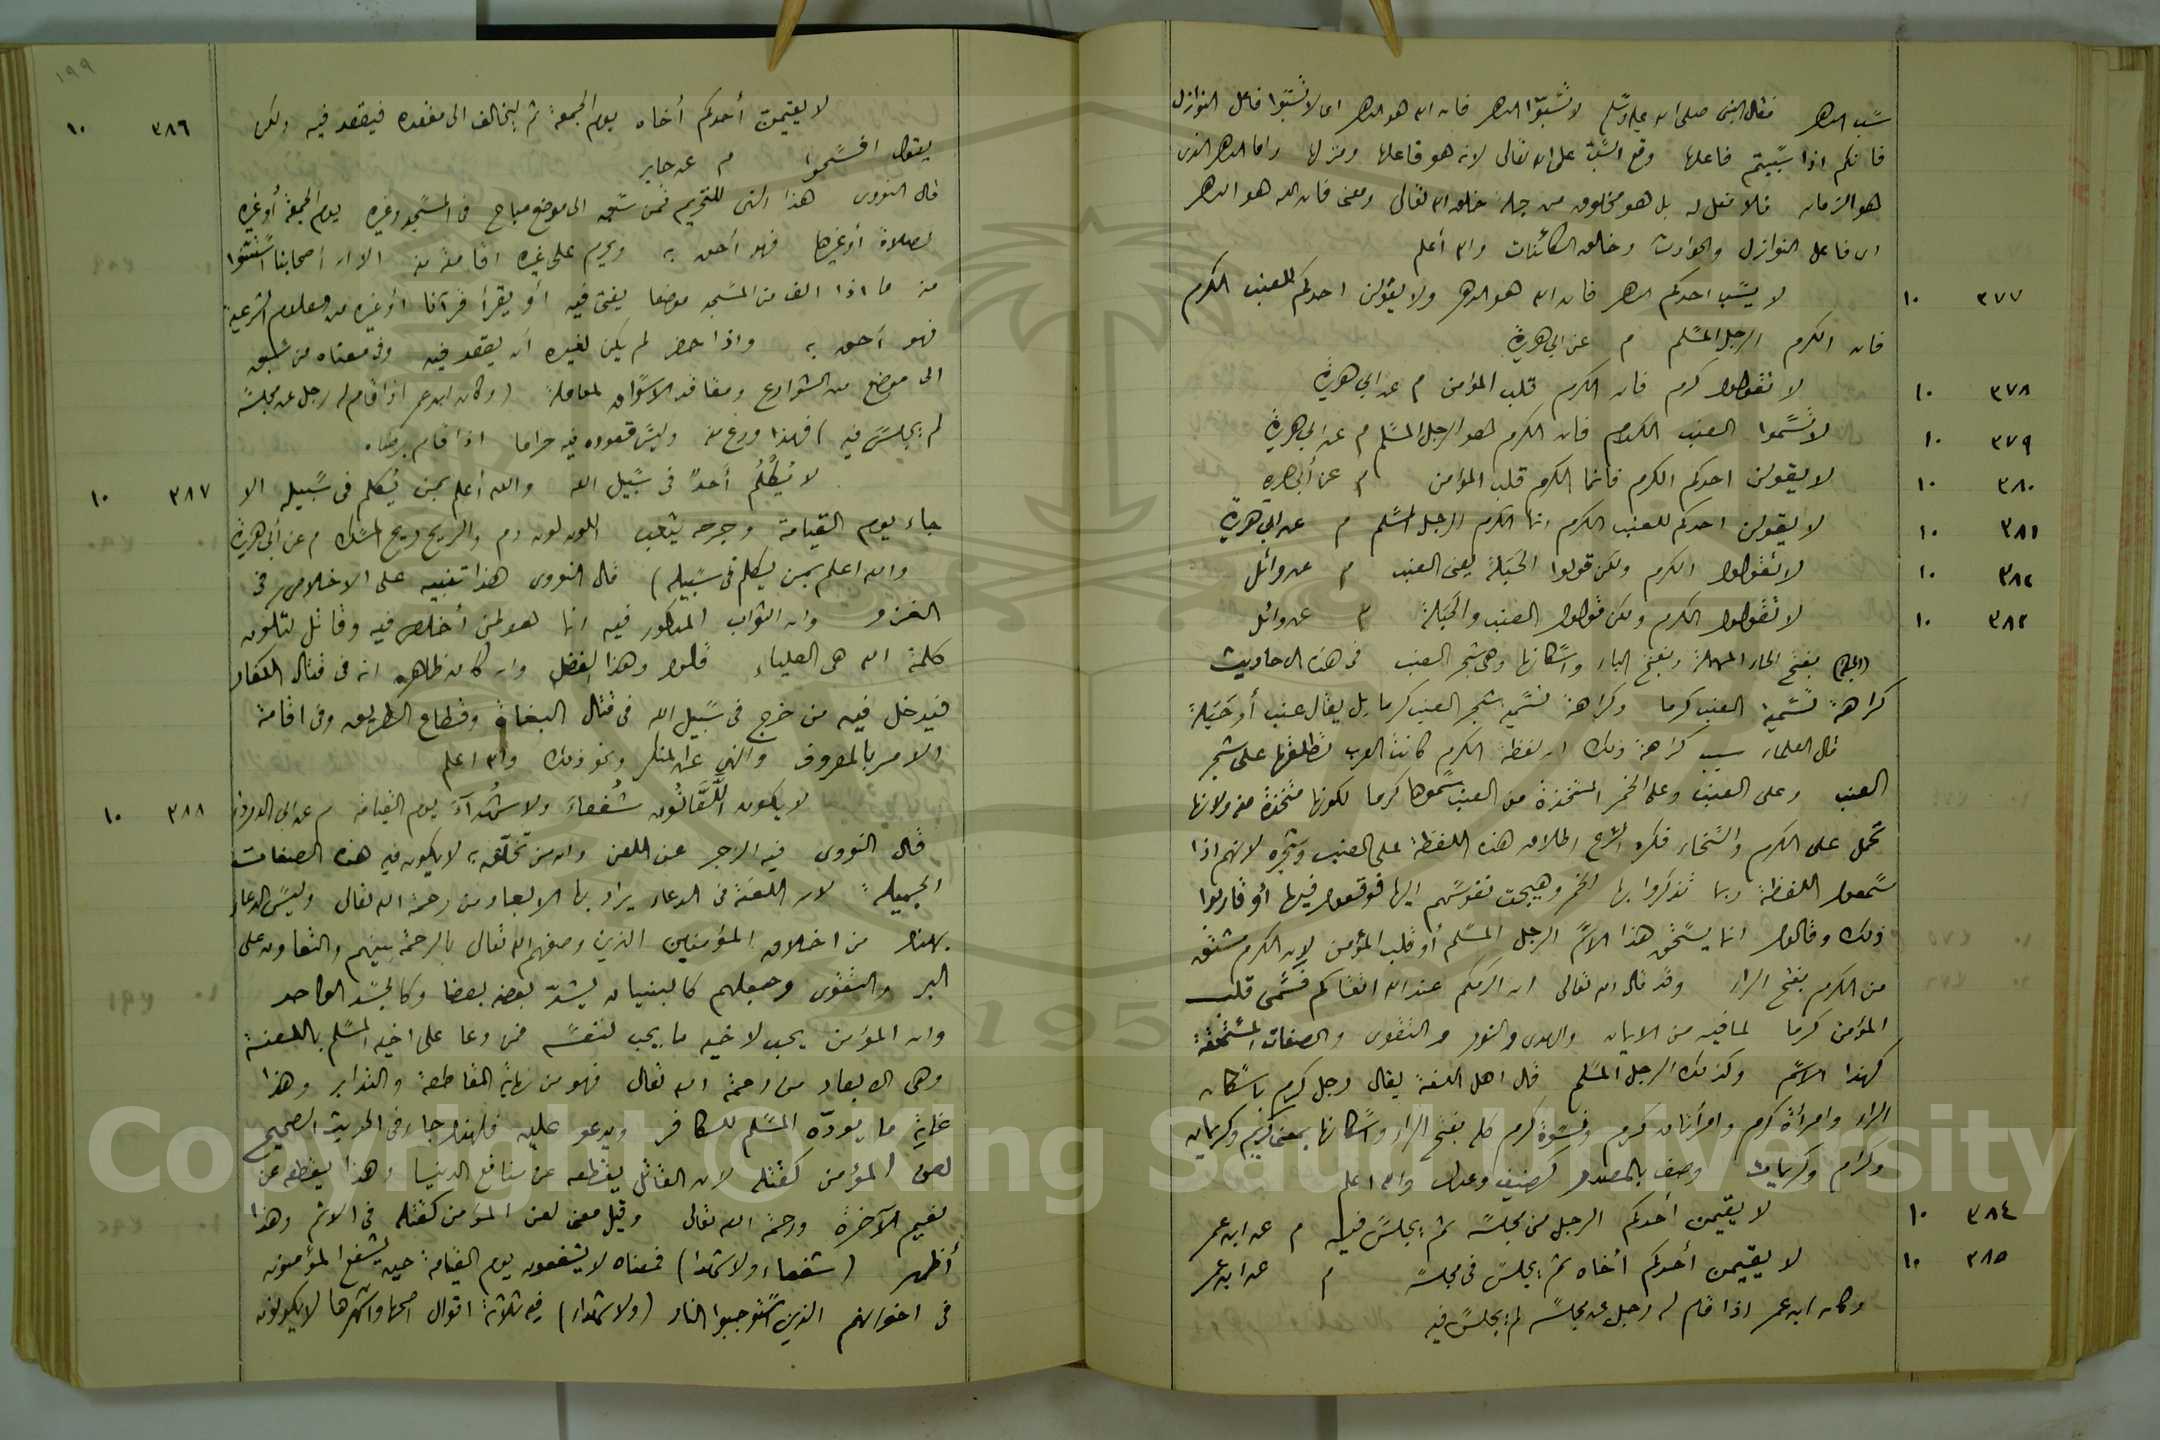 سب الدهر فقال النبى صلى الله عليه وسلم لا تسبوا الدهر فان الله هو الدهر اى لا تسبوا فاعل النوازل
فانكم اذا سببتم فاعلها وقع السب على الله تعالى لانه هو فاعلها ومنزلها واما الدهر الذى
هو الزمان فلا فعل له بل هو مخلوق من جملة خلق الله تعالى ومعنى فان الله هو الدهر
اى فاعل النوازل والحوادث وخالق الكائنات والله أعلم
٣٧٧ ١٠ لا يسب احدكم الدهر فان الله هو الدهر ولا يقولن احدكم للعنب الكرم
فان الكرم الرجل المسلم م عن ابي هريرة
٣٧٨ ١٠ لا تقولوا كرم فان الكرم قلب المؤمن م عن ابي هريرة
٣٧٩ ١٠ لا تسموا العنب الكرم فان الكرم هو الرجل المسلم م عن ابي هريرة
٣٨٠ ١٠ لا يقولن احدكم الكرم فانما الكرم قلب المؤمن م عن أبي هريرة
٣٨١ ١٠ لا يقولن احدكم للعنب الكرم انما الكرم الرجل المسلم م عن ابي هريرة
٣٨٢ ١٠ لا تقولوا الكرم ولكن قولوا الحبلة يعنى العنب م عن وائل
٣٨٣ ١٠ لا تقولوا الكرم ولكن قولوا العنب والحبلة م عن وائل
(الحبلة) بفتح الحاء المهملة وبفتح الباء واسكانها وهى شجر العنب فى هذه الاحاديث
كراهة تسمية العنب كرما وكراهة تسمية شجر العنب كرما بل يقال عنب أو حبلة
قال العلماء سبب كراهة ذلك ان لفظة الكرم كانت العرب تطلقها على شجر
العنب وعلى العنب وعلى الخمر المتخذة من العنب سموها كرما لكونها متخذة منه ولانها
تحمل على الكرم والسخاء فكره الشرع اطلاق هذه اللفظة على العنب وشجره لانهم اذا
سمعوا اللفظة ربما تذكروا بها الخمر وهيجت نفوسهم اليها فوقعوا فيها أو قاربوا
ذلك وقالوا انما يستحق هذا الاسم الرجل المسلم أو قلب المؤمن لان الكرم مشتق
من الكرم بفتح الراء وقد قال الله تعالى ان اكرمكم عند الله اتقاكم فسمى قلب
المؤمن كرما لما فيه من الايمان والهدى والنور والتقوى والصفات المستحقة
لهذا الاسم وكذلك الرجل المسلم قال اهل اللغة يقال رجل كرم باسكان
الراء وامرأة كرم وامرأتان كرم ونسوة كرم كله بفتح الراء واسكانها بمعنى كريم وكريمان
وكرام وكريمات وصف بالمصدر كضيف وعدل والله اعلم
٣٨٤ ١٠ لا يقيمن أحدكم الرجل من مجلسه ثم يجلس فيه م عن ابن عمر
٣٨٥ ١٠ لا يقيمن أحدكم أخاه ثم يجلس فى مجلسه م عن ابن عمر
وكان ابن عمر اذا قام له رجل عن مجلسه لم يجلس فيه
١٩٩
٣٨٦ ١٠ لا يقيمن أحدكم أخاه يوم الجمعة ثم ليخالف الى مقعده فيقعد فيه ولكن
يقول افسحوا م عن جابر
قال النووى هذا النهى للتحريم فمن سبق الى موضع مباح فى المسجد وغيره يوم الجمعة أو غيره
لصلاة أو غيرها فهو أحق به ويحرم على غيره اقامته منه الا ان أصحابنا استثنوا
منه ما اذا الف من المسجد موضعا يفتى فيه أو يقرأ قرآنا أو غيره من العلوم الشرعية
فهو أحق به واذا حضر لم يكن لغيره أن يقعد فيه وفى معناه من سبق
الى موضع من الشوارع ومقاعد الاسواق لمعاملة (وكان ابن عمر اذا قام له رجل عن مجلسه
لم يجلس فيه) فهذا ورع منه وليس قعوده فيه حراما اذا قام برضاه
٣٨٧ ١٠ لا يُكْلَمُ أحدٌ فى سبيل الله والله أعلم بمن يُكلم فى سبيله الا
جاء يوم القيامة وجرحه يثعب اللون لون دم والريح ريح المسك م عن أبي هريرة
(والله اعلم بمن يكلم فى سبيله) قال النووى هذا تنبيه على الاخلاص فى
الغزو وان الثواب المذكور فيه انما هو لمن أخلص فيه وقاتل لتكون
كلمة الله هى العلياء قالوا وهذا الفضل وان كان ظاهره انه فى قتال الكفار
فيدخل فيه من خرج فى سبيل الله فى قتال البغاة وقطاع الطريق وفى اقامة
الامر بالمعروف والنهى عن المنكر ونحو ذلك والله اعلم
٣٨٨ ١٠ لا يكون اللَّعَّانُون شُفعاءَ ولا شُهَدآءَ يوم القيامة م عن ابى الدرداء
قال النووى فيه الزجر عن اللعن وان من تخلق به لا يكون فيه هذه الصفات
الجميلة لان اللعنة فى الدعاء يراد بها الابعاد من رحمة الله تعالى وليس الدعاء
بهذا من اخلاق المؤمنين الذين وصفهم الله تعالى بالرحمة بينهم والتعاون على
البر والتقوى وجعلهم كالبنيان يشدّ بعضه بعضا وكالجسد الواحد
وان المؤمن يحب لاخيه ما يحب لنفسه فمن دعا على اخيه المسلم باللعنة
وهى الابعاد من رحمة الله تعالى فهو من نهاية المقاطعة والتدابر وهذا
غاية ما يودّه المسلم للكافر ويدعو عليه فلهذا جاء فى الحديث الصحيح
لعن المؤمن كقتله لان القاتل يقطعه عن منافع الدنيا وهذا يقطعه عن
نعيم الآخرة ورحمة الله تعالى وقيل معنى لعن المؤمن كقتله فى الاثم وهذا
أظهر (شفعاء ولا شهداء) فمعناه لا يشفعون يوم القيامة حين يشفع المؤمنون
فى اخوانهم الذين استوجبوا النار (ولا شهداء) فيه ثلاثة اقوال اصحها واشهرها لا يكونون
Copyright © King Saud University
1957